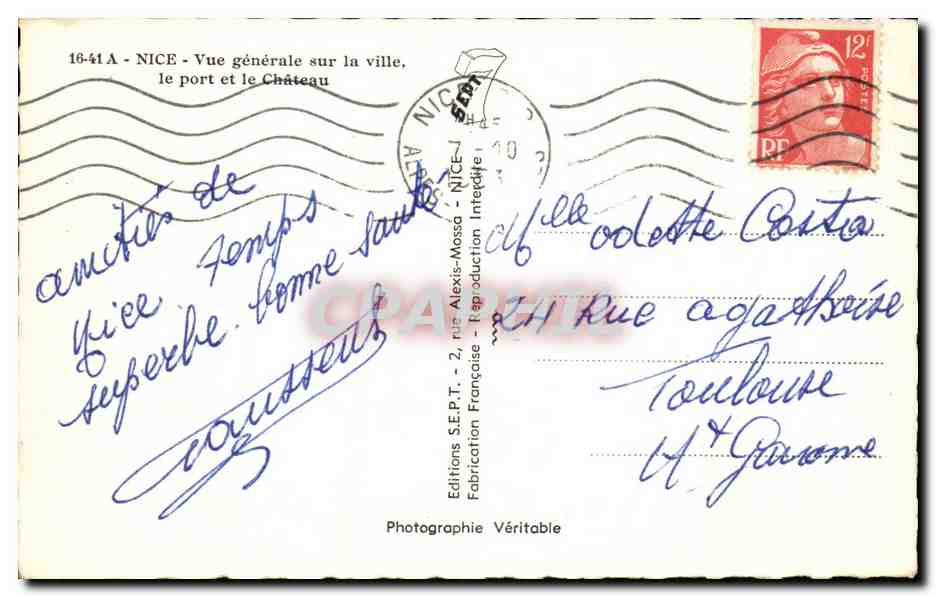 16-41 A - NICE - Vue générale sur la ville,
le port et le Château
amitiés de
Nice. Temps
superbe. bonne santé
Editions S.E.P.T. - 2, rue Alexis-Mossa - NICE
Fabrication Française - Reproduction Interdite
SEPT
NICE
ALPES
12F
POSTES
RF
Mlle odette Costa
24 Rue agathoise
Toulouse
Ht Garonne
CPARAMA
Photographie Véritable